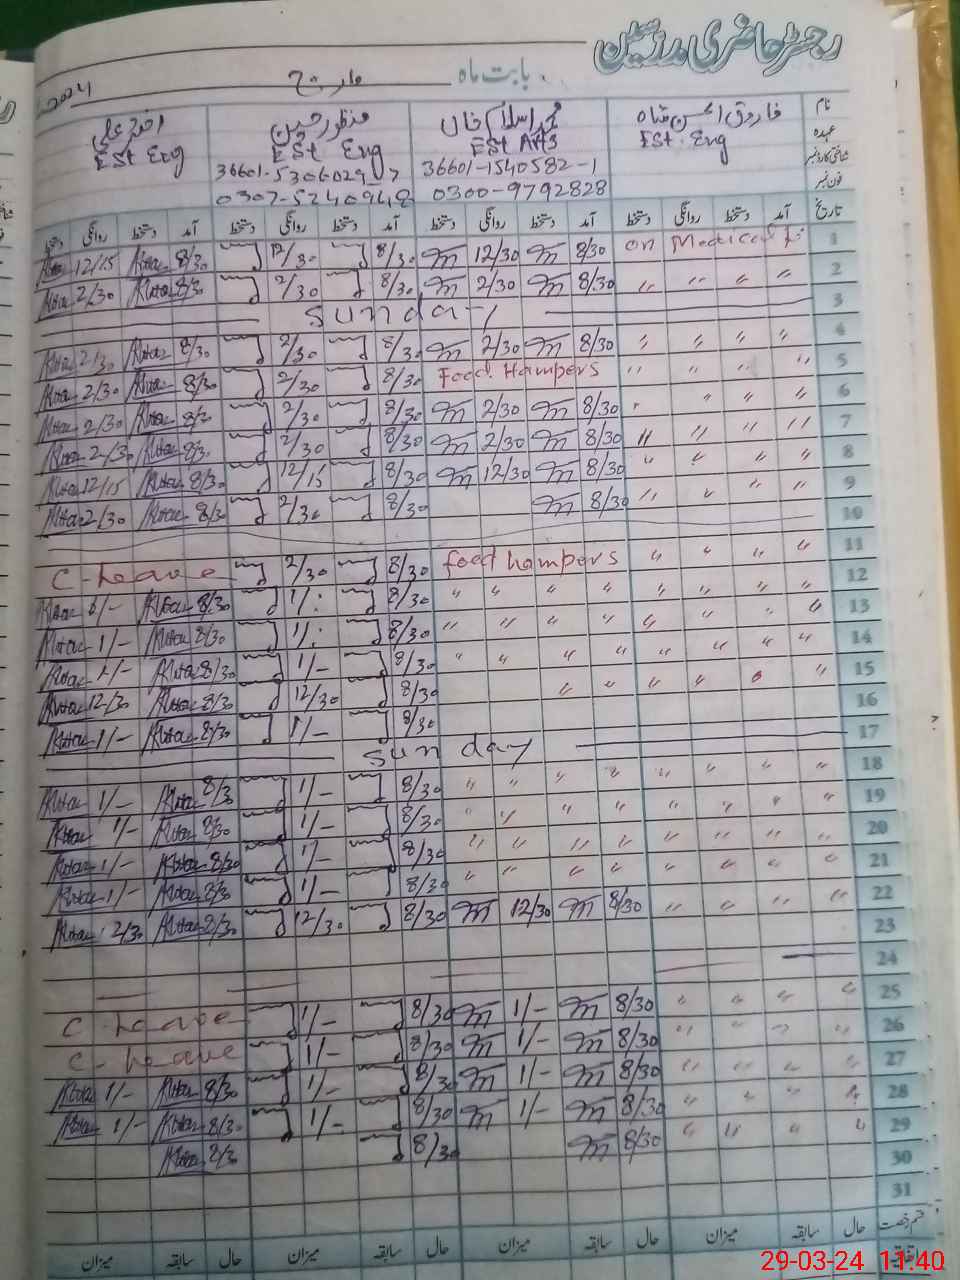 رجسٹر حاضری مدرسین
بابت ماہ مارچ 2024
نام فاروق الحسن شاہ محمد اسلام خاں منظور حسین اختر علی
عہدہ EST. Eng EST Arts EST Eng EST Eng
شناختی کارڈ نمبر 36601-1540582-1
فون نمبر 0300-9792828
تاریخ آمد دستخط روانگی دستخط آمد دستخط روانگی دستخط آمد دستخط روانگی دستخط آمد دستخط روانگی دستخط
1 on Medical 8/30 12/30 8/30 12/30 8/30 12/15
2 " " " " 8/30 2/30 8/30 2/30 8/30 2/30
3 Sunday
4 " " " " 8/30 2/30 8/30 2/30 8/30 2/30
5 " " " " Food Hampers 8/30 2/30 8/30 2/30
6 " " " " 8/30 2/30 8/30 2/30 8/30 2/30
7 " " " " 8/30 2/30 8/30 2/30 8/30 2/30
8 " " " " 8/30 12/30 8/30 12/15 8/30 12/15
9 " " " " 8/30 8/30 2/30 8/30 2/30
10
11 " " " " food hampers 8/30 2/30 C-Leave
12 " " " " " " " " 8/30 1/: 8/30
13 " " " " " " " " 8/30 1/: 8/30 1/-
14 " " " " " " " " 8/30 1/- 8/30 1/-
15 " " " " " " 8/30 12/30 8/30 12/30
16 8/30 1/- 8/30 1/-
17 Sunday
18 " " " " " " " " 8/30 1/- 8/30 1/-
19 " " " " " " " " 8/30 1/- 8/30 1/-
20 " " " " " " " " 8/30 1/- 8/30 1/-
21 " " " " " " " " 8/30 1/- 8/30 1/-
22 " " " " 8/30 12/30 8/30 12/30 8/30 2/30
23
24
25 " " " " 8/30 1/- 8/30 1/- C-Leave
26 " " " " 8/30 1/- 8/30 1/- C-Leave
27 " " " " 8/30 1/- 8/30 1/- 8/30 1/-
28 " " " " 8/30 1/- 8/30 1/- 8/30 1/-
29 " " " " 8/30 8/30 8/30
30
31
قسم رخصت حال سابقہ میزان حال سابقہ میزان حال سابقہ میزان حال سابقہ میزان
29-03-24 11:40